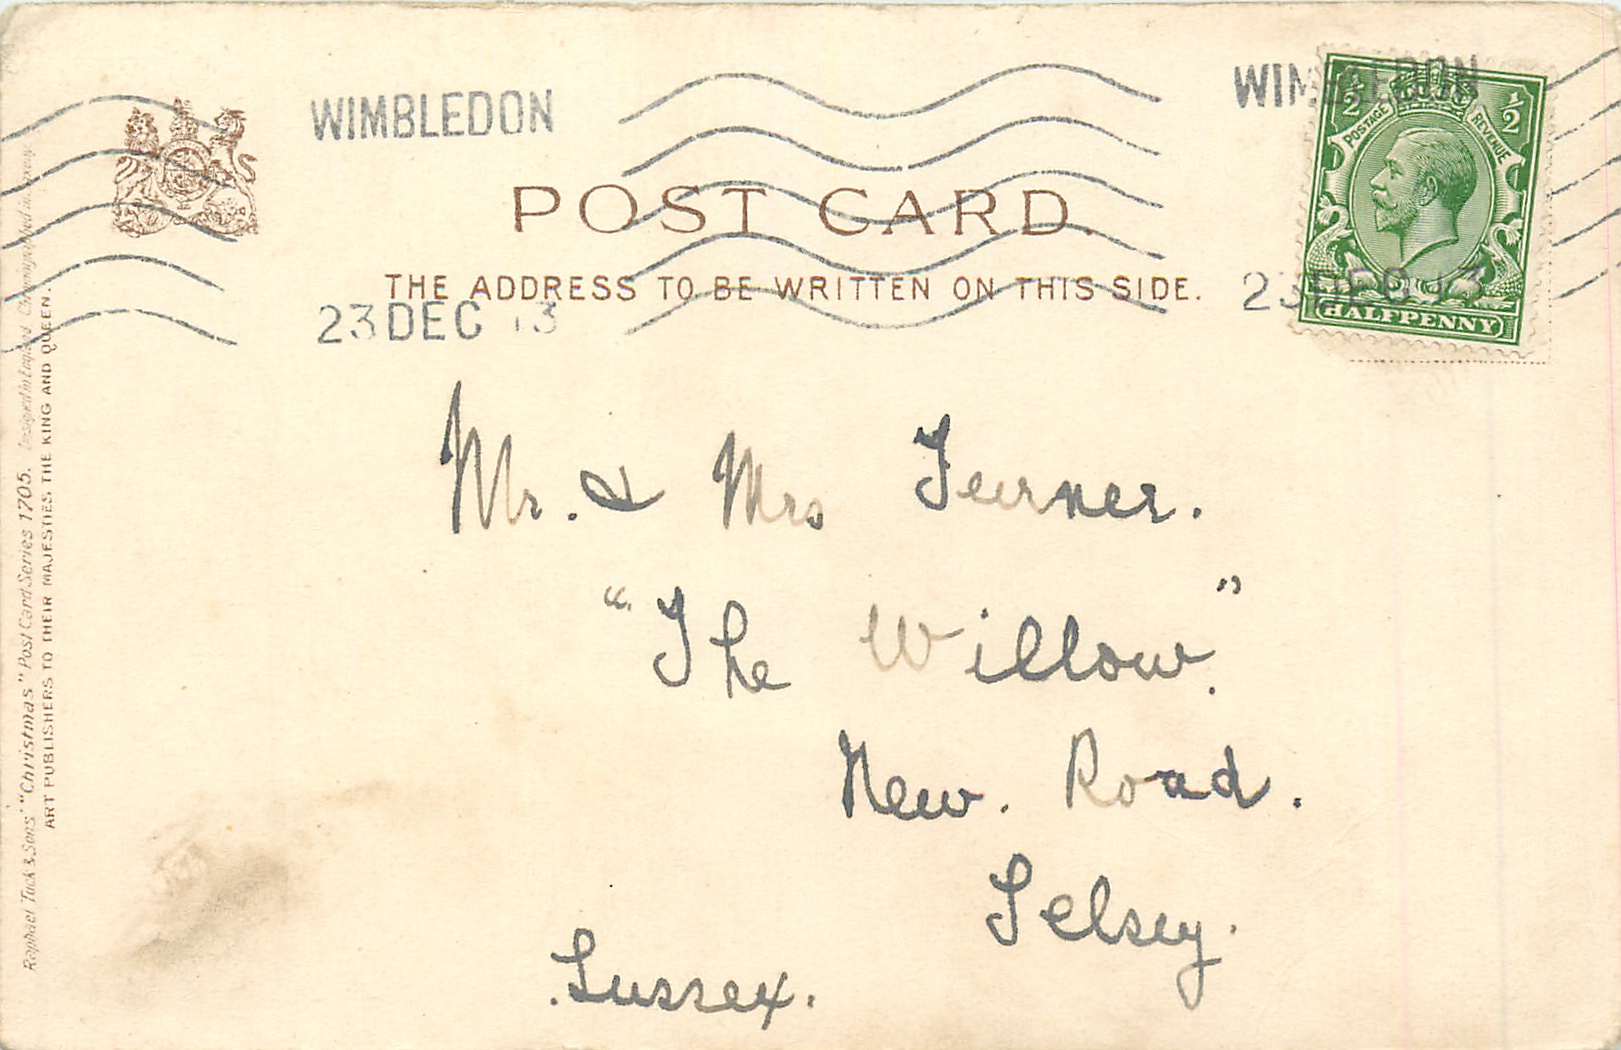 WIMBLEDON
WIMBLEDON
POST CARD.
THE ADDRESS TO BE WRITTEN ON THIS SIDE.
23 DEC 13
23 DEC 13
1/2 POSTAGE REVENUE 1/2
HALFPENNY
Mr. & Mrs Turner.
"The Willow."
New. Road.
Selsey.
.Sussex.
Raphael Tuck & Sons' "Christmas" Post Card Series 1705. Designed in England. Chromographed in Saxony.
ART PUBLISHERS TO THEIR MAJESTIES THE KING AND QUEEN.